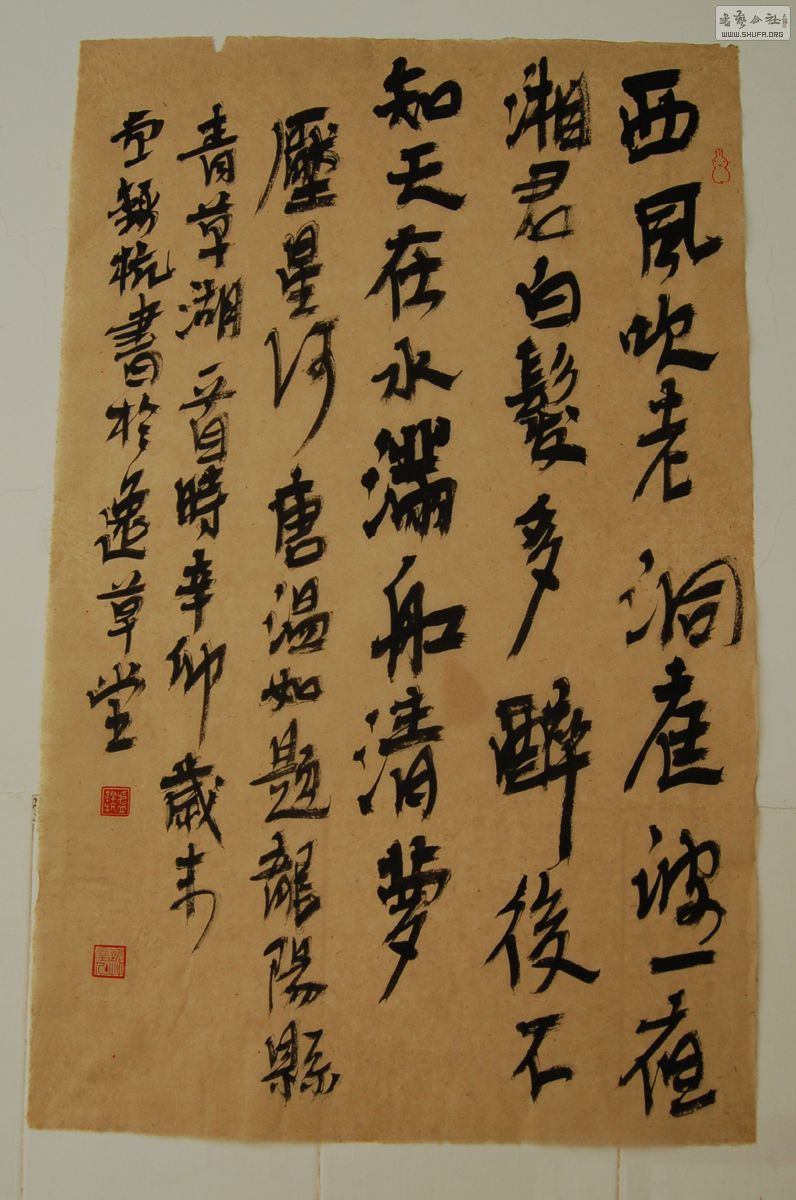 西風吹老洞庭波一夜
湘君白髮多醉後不
知天在水滿船清夢
壓星河唐溫如題龍陽縣
青草湖一首時辛卯歲末
書於逸草堂
WWW.SHUFA.ORG